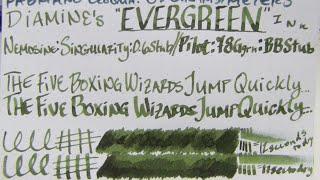 DIAMINE'S "EVERGREEN" INK
NEMOSINE: SINGULARITY: 0.6 STUB//PILOT: 78G YRN: BB STUB
THE FIVE BOXING WIZARDS JUMP QUICKLY...
THE FIVE BOXING WIZARDS JUMP QUICKLY...
12 seconds to dry
11 sec to dry